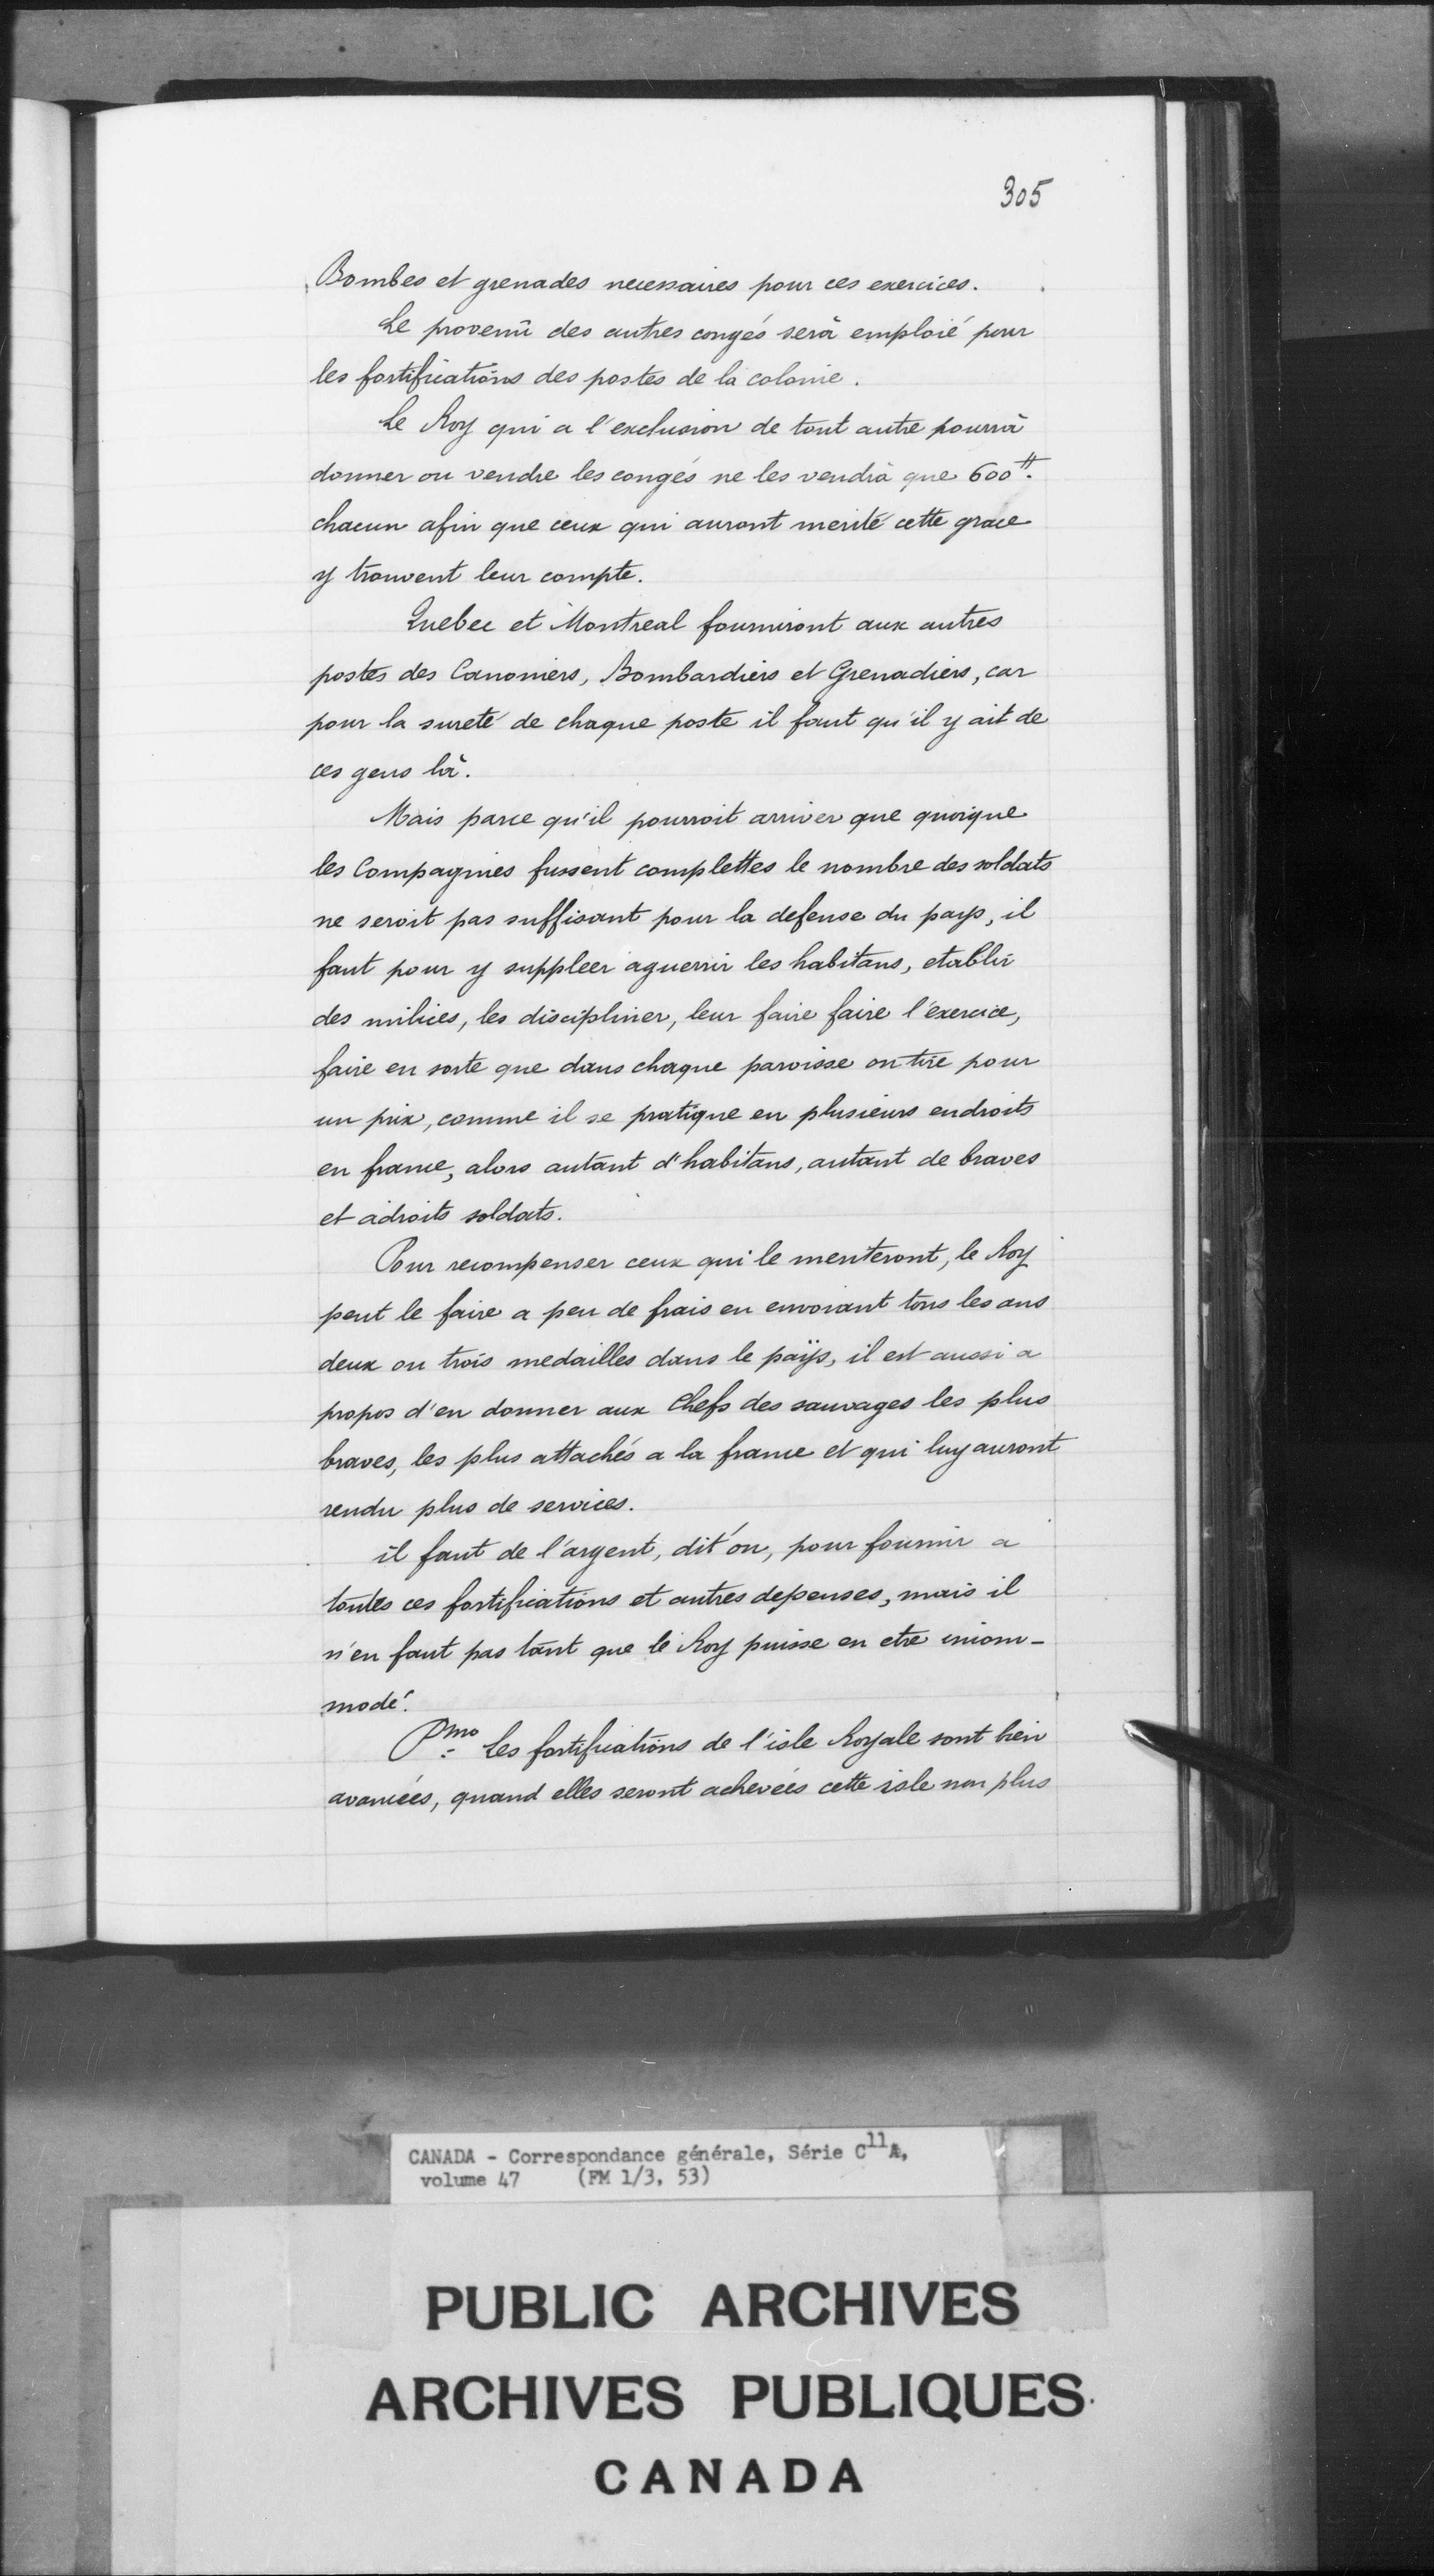 305
Bombes et grenades necessaires pour ces exercices.
Le provenû des autres congés serà emploié pour
les fortifications des postes de la colonie.
Le Roy qui a l'exclusion de tout autre pourrà
donner ou vendre les congés ne les vendrà que 600#.
chacun afin que ceux qui auront merité cette grace
y trouvent leur compte.
Quebec et Montreal fourniront aux autres
postes des Canoniers, Bombardiers et Grenadiers, car
pour la sureté de chaque poste il faut qu'il y ait de
ces gens là.
Mais parce qu'il pourroit arriver que quoique
les Compagnies fussent complettes le nombre des soldats
ne seroit pas suffisant pour la defense du pays, il
faut pour y suppleer aguerrir les habitans, etablir
des milices, les discipliner, leur faire faire l'exercice,
faire en sorte que dans chaque paroisse on tire pour
un prix, comme il se pratique en plusieurs endroits
en france, alors autant d'habitans, autant de braves
et adroits soldats.
Pour recompenser ceux qui le meriteront, le Roy
peut le faire a peu de frais en envoiant tous les ans
deux ou trois medailles dans le païs, il est aussi a
propos d'en donner aux Chefs des sauvages les plus
braves, les plus attachés a la france et qui luy auront
rendu plus de services.
il faut de l'argent, dit'on, pour fournir a
toutes ces fortifications et autres depenses, mais il
n'en faut pas tant que le Roy puisse en etre incom-
modé.
Pmo Les fortifications de l'isle Royale sont bien
avancées, quand elles seront achevées cette isle non plus
CANADA - Correspondance générale, Série C11A,
volume 47 (FM 1/3, 53)
PUBLIC ARCHIVES
ARCHIVES PUBLIQUES
CANADA